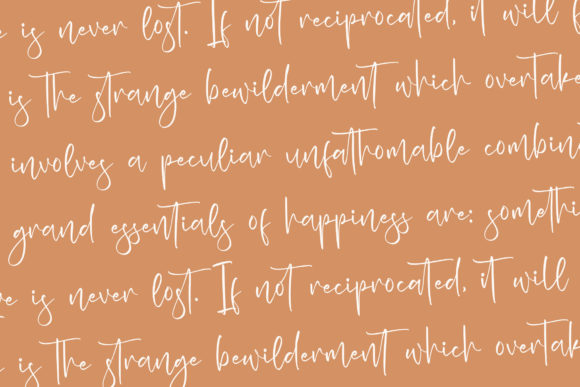 e is never lost. If not reciprocated, it will f
is the strange bewilderment which overtake
involves a peculiar unfathomable combin
grand essentials of happiness are: somethi
e is never lost. If not reciprocated, it will
e is the strange bewilderment which overtak